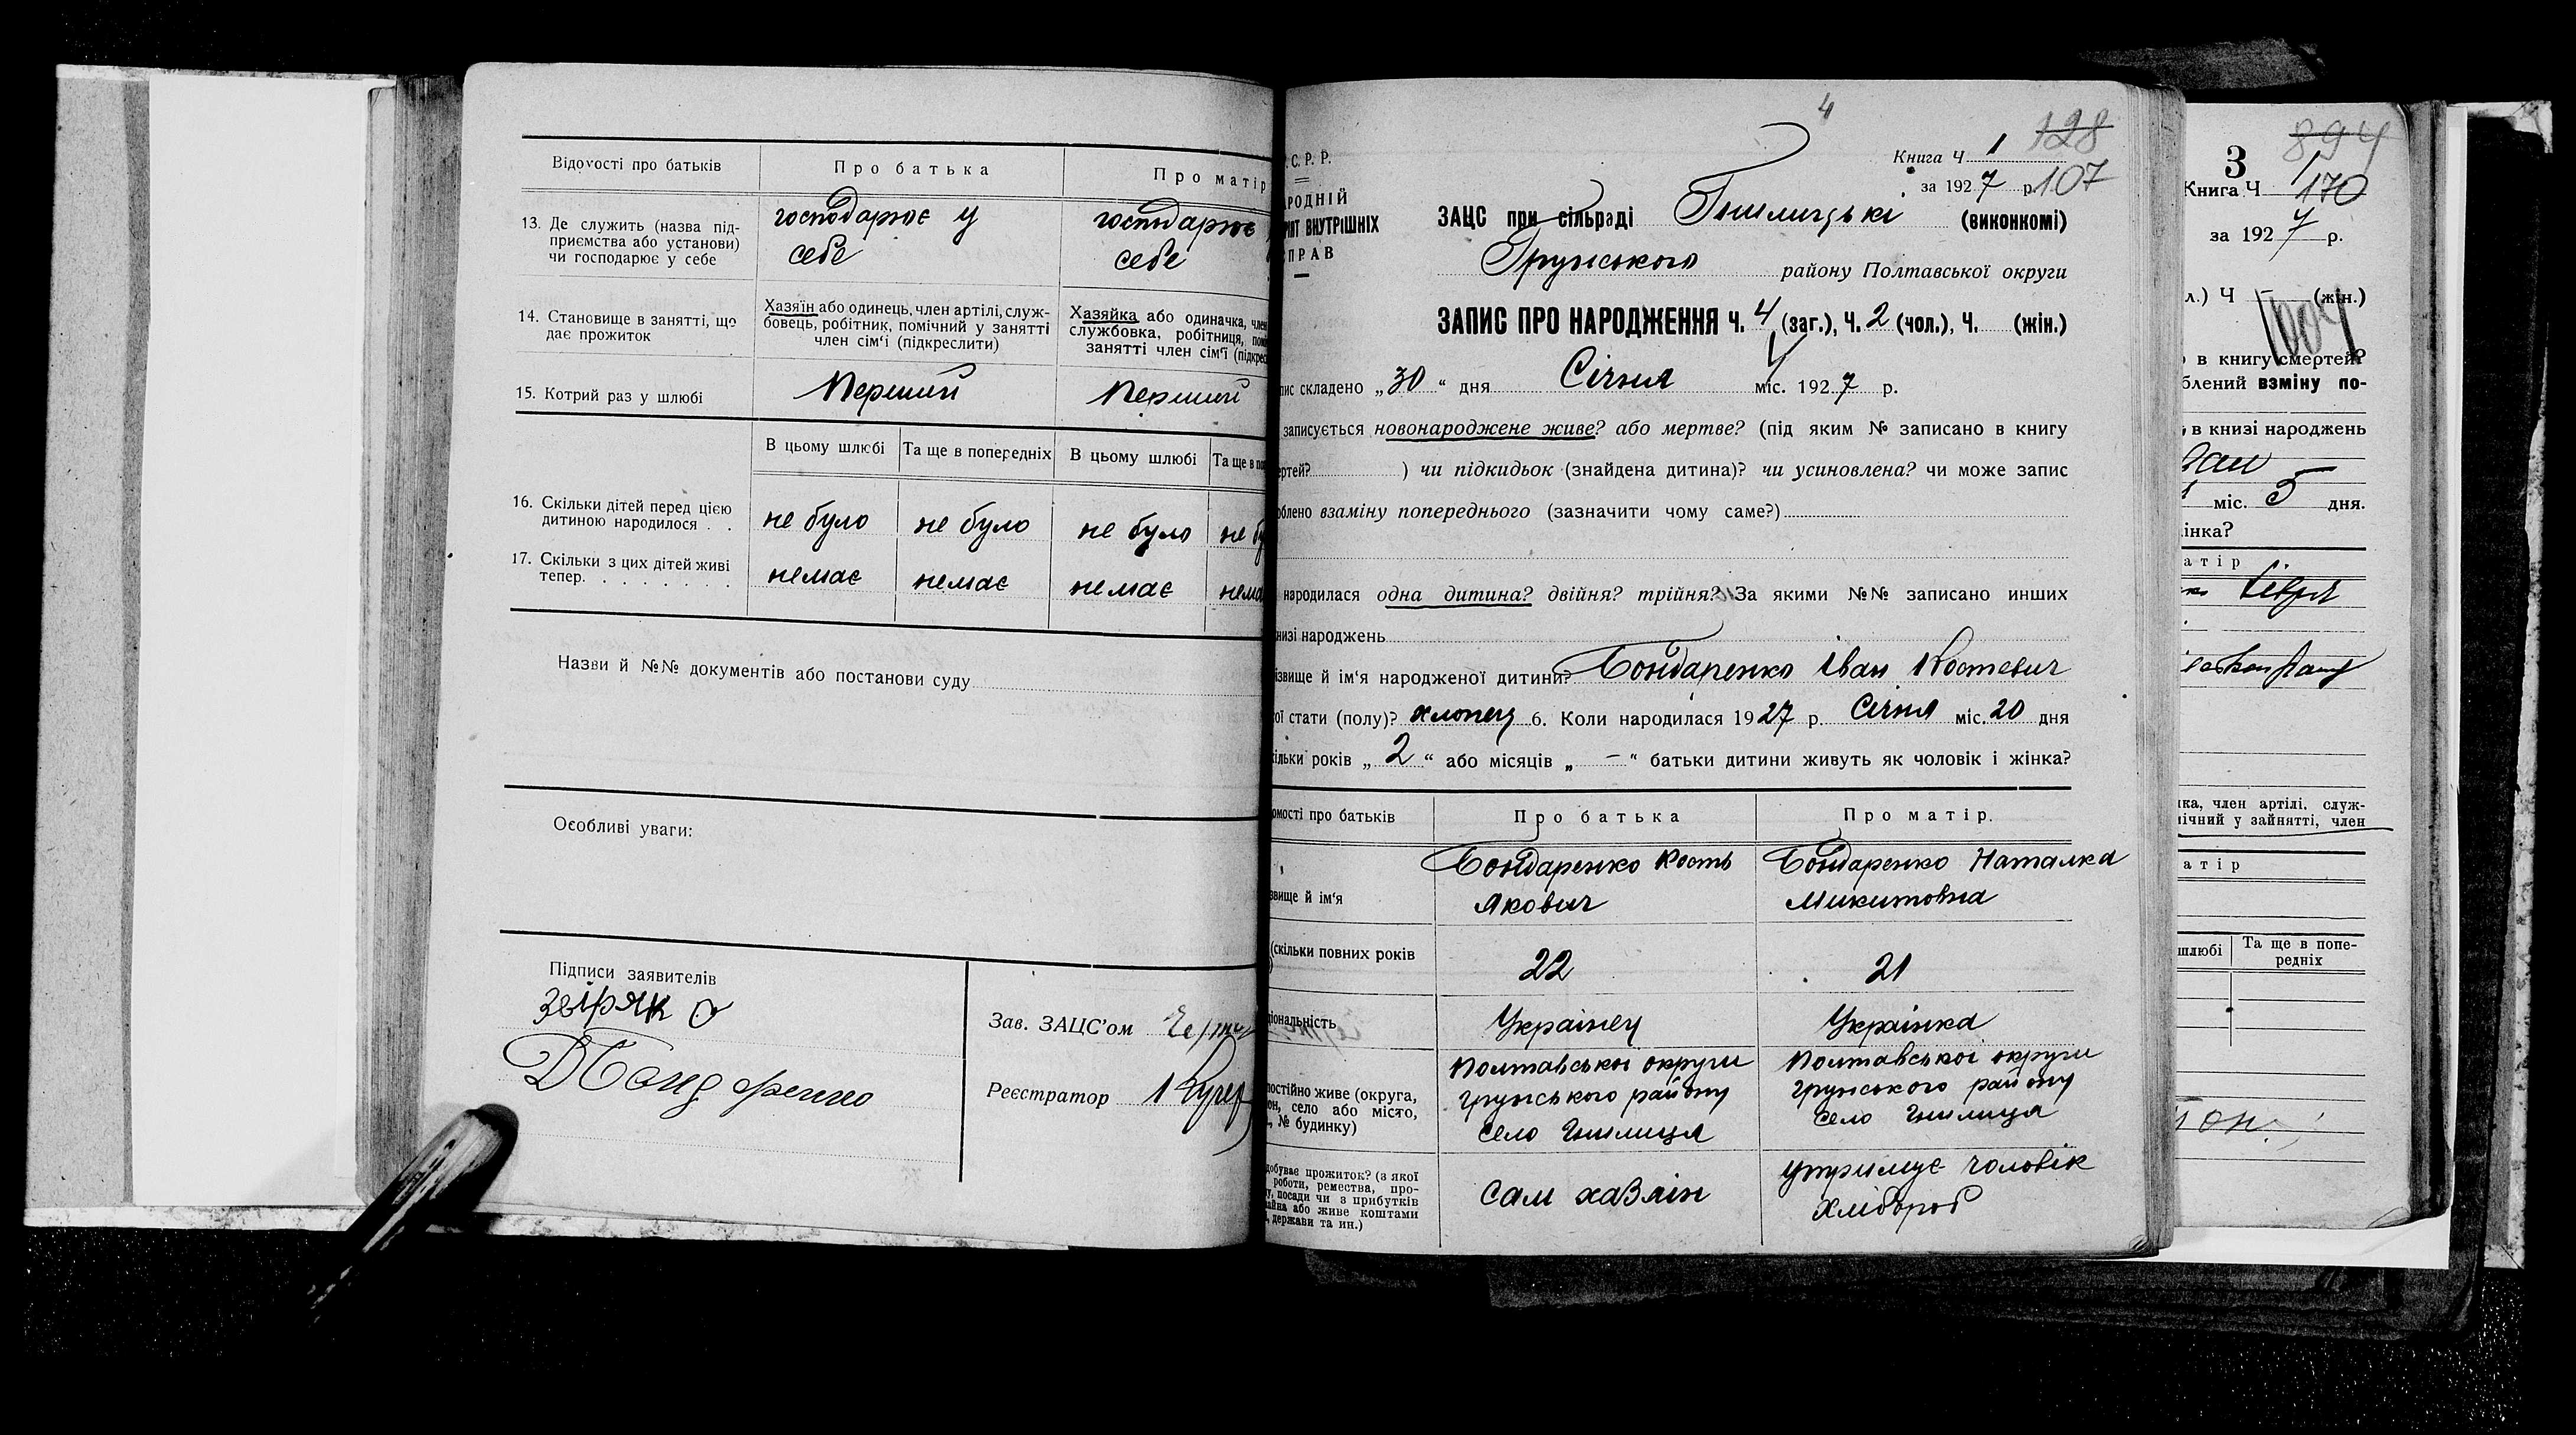 Відомості про батьків
Про батька
Про матір
13. Де служить (назва під-
приємства або установи)
чи господарює у себе
господарює у
себе
господарює
себе
14. Становище в занятті, що
дає прожиток
Хазяїн або одинець, член артілі, служ-
бовець, робітник, помічний у занятті
член сім'ї (підкреслити)
Хазяйка або одиначка, член
службовка, робітниця,
занятті член сім'ї
15. Котрий раз у шлюбі
Перший
Перший
В цьому шлюбі
Та ще в попередніх
В цьому шлюбі
Та ще в
16. Скільки дітей перед цією
дитиною народилося . .
не було
не було
не було
не
17. Скільки з цих дітей живі
тепер. . . . . . . .
немає
немає
немає
Назви й №№ документів або постанови суду
Особливі уваги:
Підписи заявителів
Звіряк О
Д Бондаренко
Зав. ЗАЦС'ом
Реєстратор
4
Книга Ч 1 128
за 1927 р. 107
С. Р. Р.
ВНУТРІШНІХ
ПРАВ
ЗАЦС при сільраді Гнилицькі (виконкомі)
Грунського району Полтавської округи
ЗАПИС ПРО НАРОДЖЕННЯ Ч. 4 (заг.), Ч. 2 (чол.), Ч. (жін.)
складено „30“ дня Січня міс. 1927 р.
записується новонароджене живе? або мертве? (під яким № записано в книгу
) чи підкидьок (знайдена дитина)? чи усиновлена? чи може запис
взаміну попереднього (зазначити чому саме?)
народилася одна дитина? двійня? трійня? За якими №№ записано инших
народжень
й ім'я народженої дитини? Бондаренко Іван Костевич
стати (полу)? хлопець 6. Коли народилася 1927 р. Січня міс. 20 дня
років „2“ або місяців „–“ батьки дитини живуть як чоловік і жінка?
про батьків
Про батька
Про матір.
й ім'я
Бондаренко Кость
Якович
Бондаренко Наталка
Микитовна
(скільки повних років
22
21
Українец
Українка
постійно живе (округа,
село або місто,
№ будинку)
Полтавської округи
грунського району
село Гнилиця
Полтавської округи
грунського району
село Гнилиця
прожиток? (з якої
роботи, ремества, про-
посади чи з прибутків
або живе коштами
держави та ин.)
сам хазяін
утримує чоловік
хлібороб
894
3
Книга Ч 1
170
за 1927 р.
Ч – (жін.)
1004
в книгу смертей?
взміну по-
в книзі народжень
міс. 5 дня.
жінка?
матір
член артілі, служ-
у зайнятті, член
матір
шлюбі
Та ще в попе-
редніх